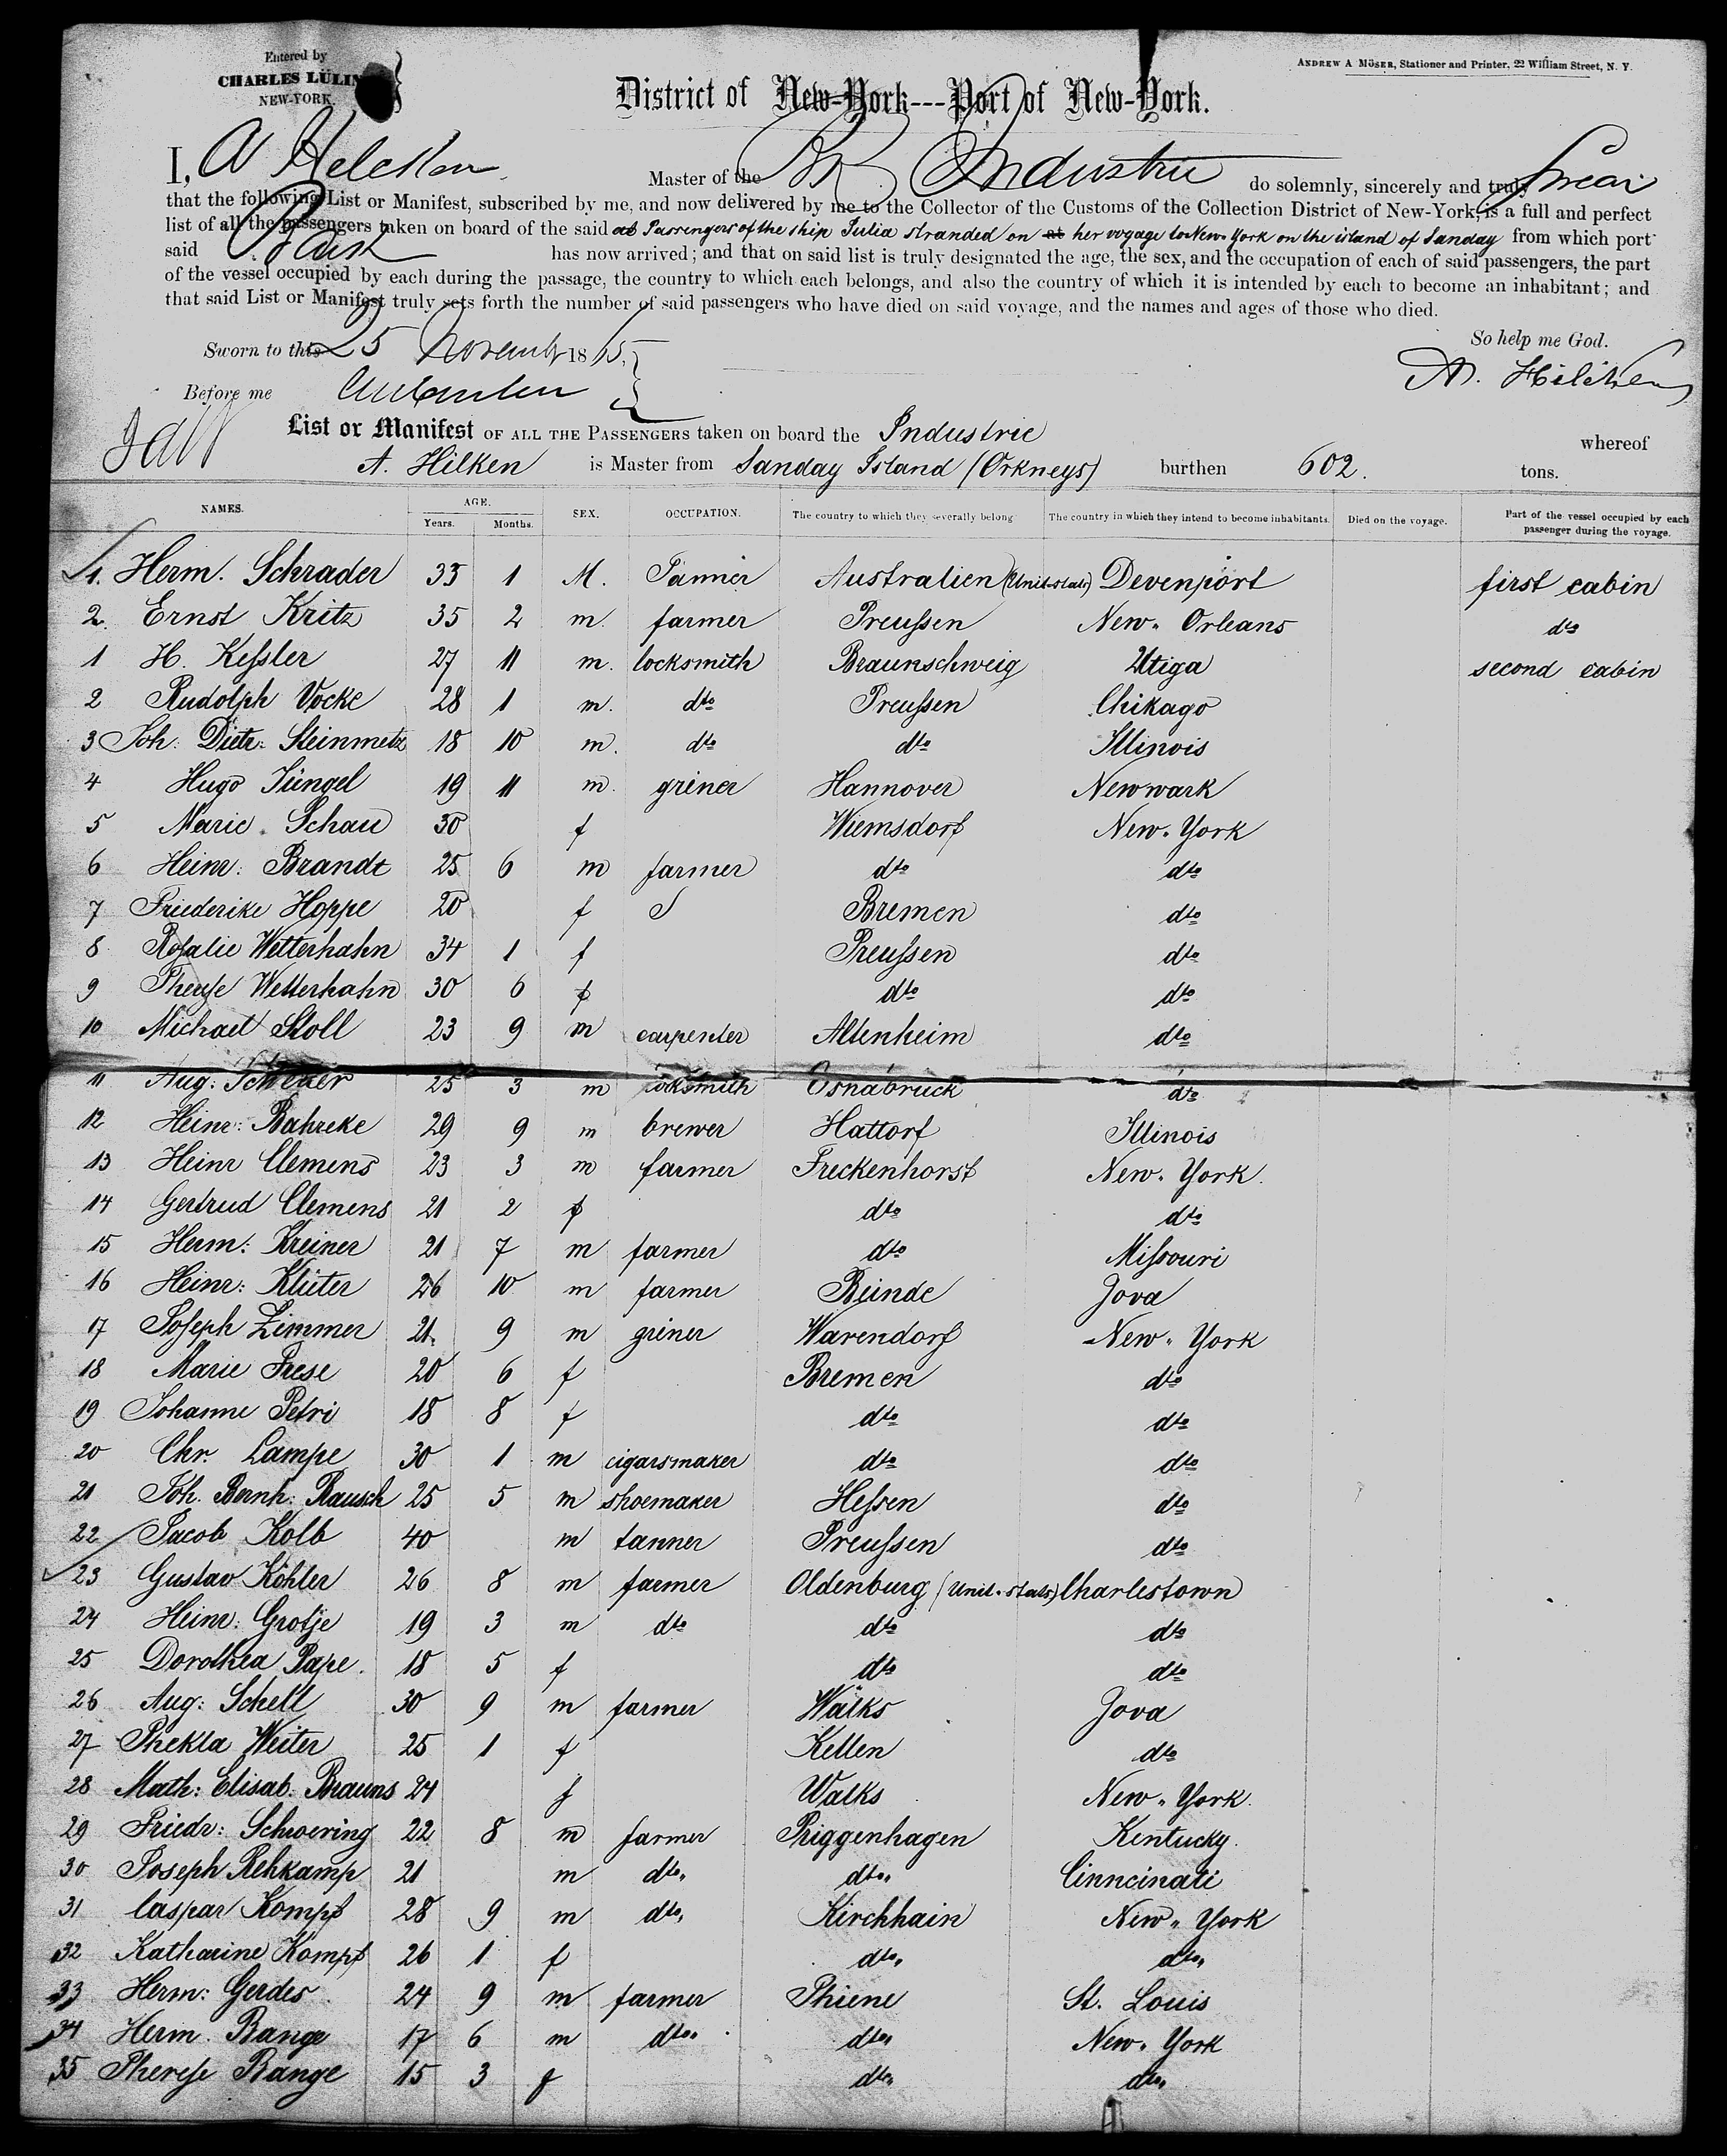 Entered by
CHARLES LÜLIN
NEW-YORK.
ANDREW A MÖSER, Stationer and Printer, 22 William Street, N. Y.
District of New-York---Port of New-York.
I, Master of the Bk Industrie do solemnly, sincerely and truly swear
that the following List or Manifest, subscribed by me, and now delivered by me to the Collector of the Customs of the Collection District of New-York, is a full and perfect
list of all the passengers taken on board of the said as Passengers of the ship Julia stranded on her voyage to New-York on the island of Sanday from which port
said Bark has now arrived; and that on said list is truly designated the age, the sex, and the occupation of each of said passengers, the part
of the vessel occupied by each during the passage, the country to which each belongs, and also the country of which it is intended by each to become an inhabitant; and
that said List or Manifest truly sets forth the number of said passengers who have died on said voyage, and the names and ages of those who died.
Sworn to this 25 November 1865. So help me God.
Before me A. Hilken
List or Manifest OF ALL THE PASSENGERS taken on board the Industrie whereof
A. Hilken is Master from Sanday Island (Orkneys) burthen 602. tons.
NAMES. AGE. SEX. OCCUPATION. The country to which they severally belong The country in which they intend to become inhabitants. Died on the voyage. Part of the vessel occupied by each passenger during the voyage.
Years. Months.
1. Herm. Schrader 33 1 M. Tanner Australien (Unit-stats) Devenport first cabin
2. Ernst Kritz 35 2 m. farmer Preussen New-Orleans dto
1 H. Kessler 27 11 m. locksmith Braunschweig Utiga second cabin
2 Rudolph Vocke 28 1 m. dto Preussen Chikago
3 Joh: Dietr: Steinmetz 18 10 m. dto dto Illinois
4 Hugo Jüngel 19 11 m. griner Hannover Newwark
5 Marie Schau 30 f Wiemsdorf New-York
6 Heinr: Brandt 25 6 m farmer dto dto
7 Friederike Hoppe 20 f Bremen dto
8 Rosalie Wetterhahn 34 1 f Preussen dto
9 Therese Wetterhahn 30 6 f dto dto
10 Michael Stoll 23 9 m carpenter Altenheim dto
11 Aug: Scheuer 25 3 m locksmith Osnabrück dto
12 Heinr: Bahreke 29 9 m brewer Hattorf Illinois
13 Heinr Clemens 23 3 m farmer Freckenhorst New-York.
14 Gertrud Clemens 21 2 f dto dto
15 Herm: Kreiner 21 7 m farmer dto Missouri
16 Heinr: Klüter 26 10 m farmer Beünde Jova
17 Joseph Zimmer 21. 9 m griner Warendorf New-York
18 Marie Frese 20 6 f Bremen dto
19 Johanne Petri 18 8 f dto dto
20 Chr. Lampe 30 1 m cigarsmaker dto dto
21 Joh. Bernh: Rausch 25 5 m shoemaker Hessen dto
22 Jacob Kolb 40 m tanner Preussen dto
23 Gustav Köhler 26 8 m farmer Oldenburg (Unit-stats) Charlestown
24 Heinr: Grotje 19 3 m dto dto dto
25 Dorothea Pape. 18 5 f dto dto
26 Aug: Schell 30 9 m farmer Wälks Jova
27 Thekla Weiter 25 1 f Kellen dto
28 Math: Elisab: Brauns 24 f Walks New-York.
29 Friedr: Schwering 22 8 m farmer Priggenhagen Kentucky.
30 Joseph Rehkamp 21 m dto. dto. Cinncinati
31 Caspar Kompf 28 9 m dto. Kirchhain New-York
32 Katharine Kompf 26 1 f dto. dto.
33 Herm: Gerdes 24 9 m farmer Thiene St. Louis
34 Herm. Bange 17 6 m dto. dto. New-York
35 Therese Bange 15 3 f dto. dto.